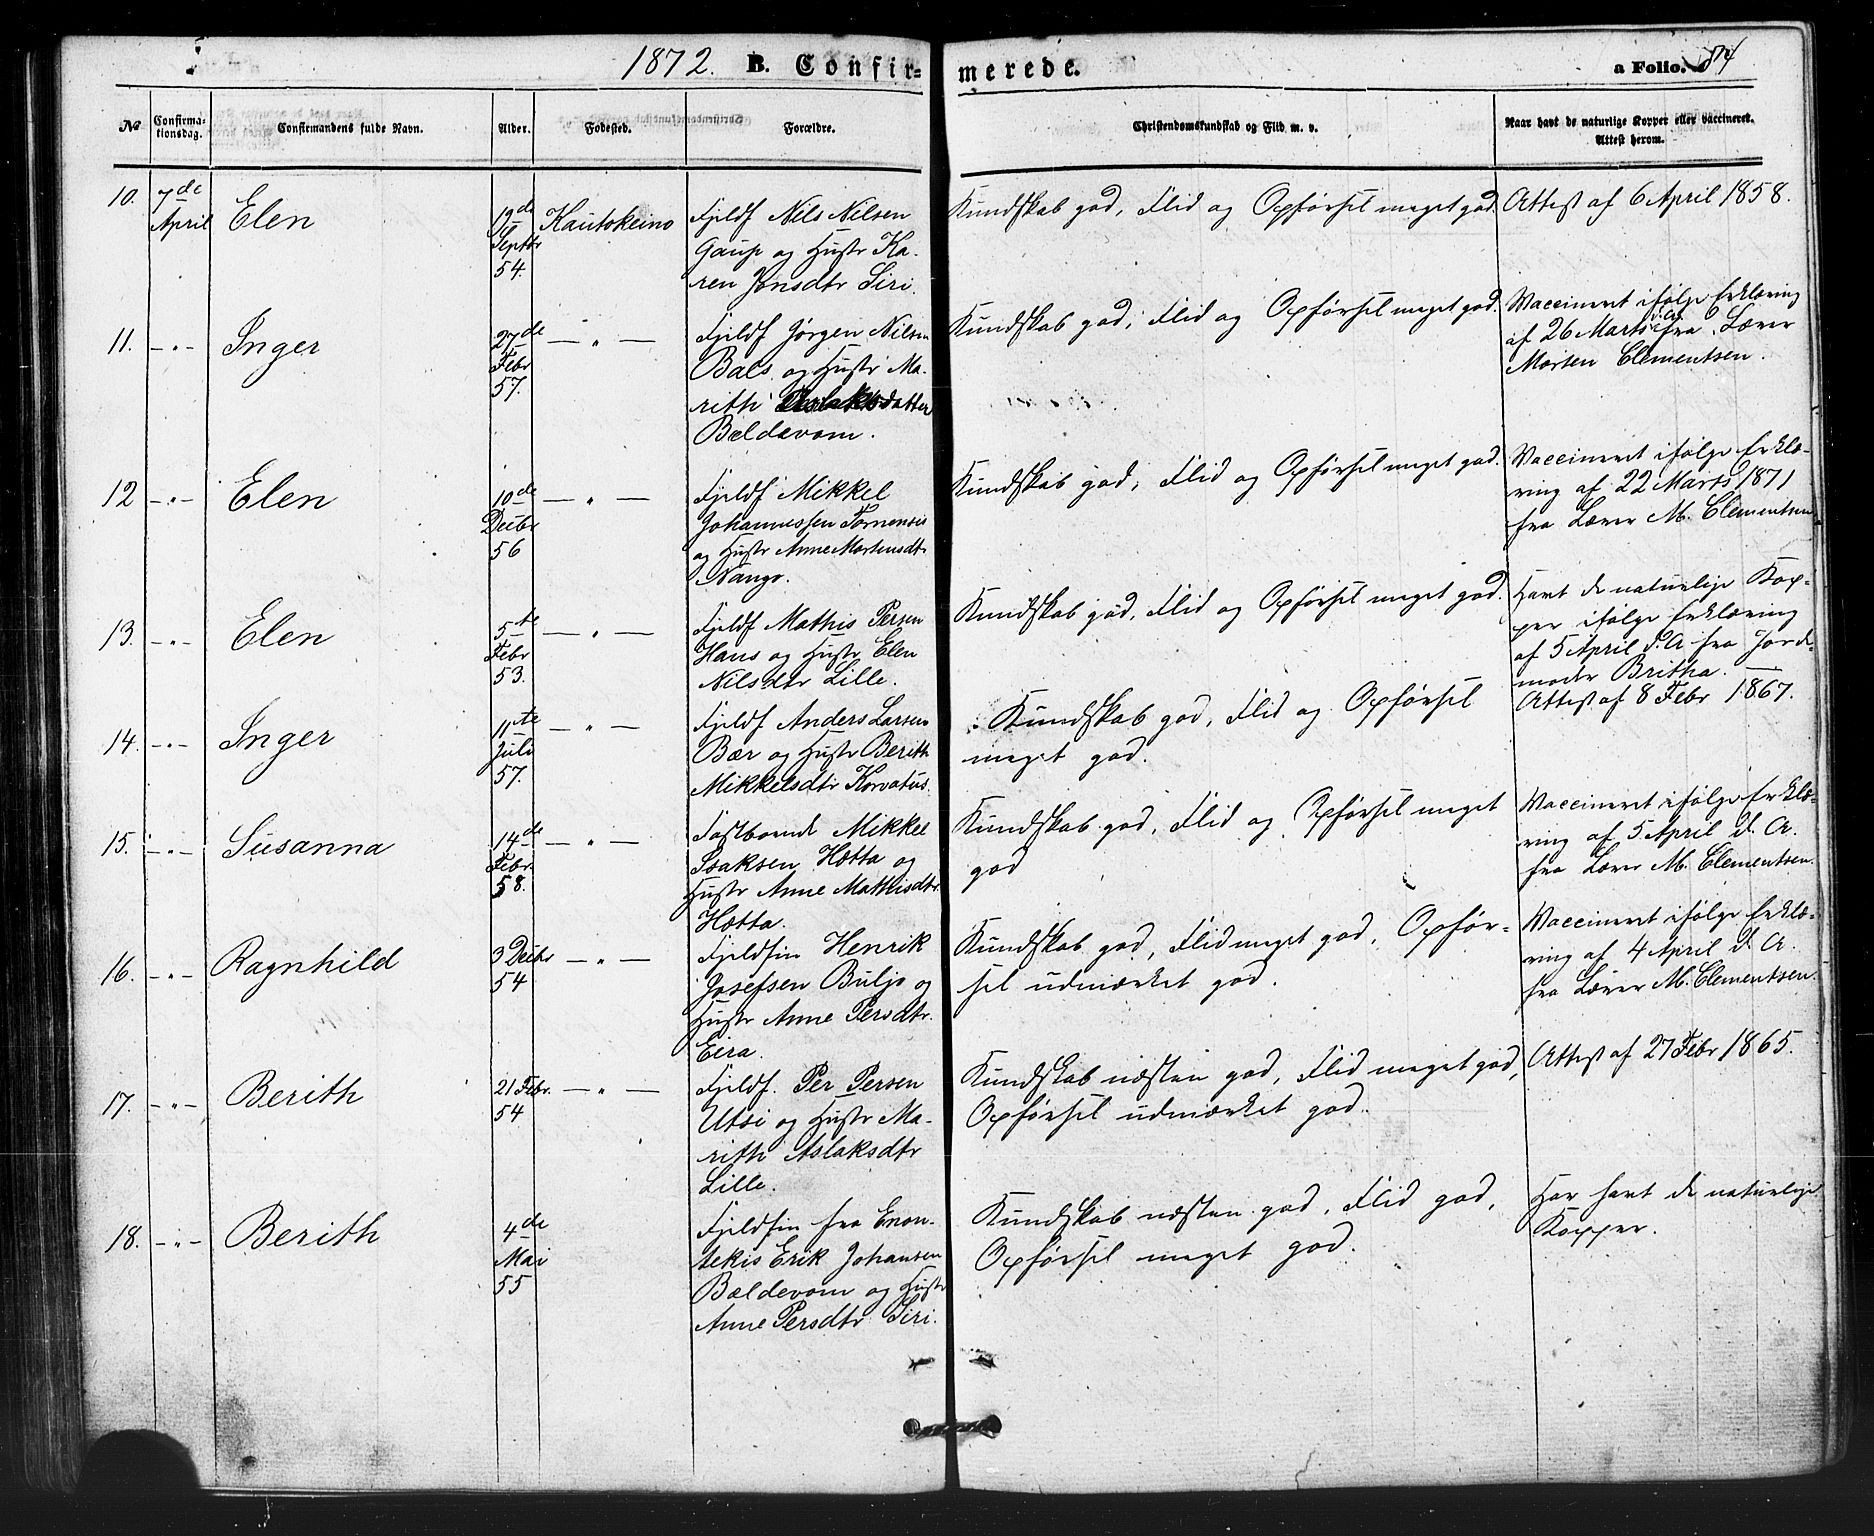 1872. B. Confirmerede. a Folio. 84
No Confirmationsdag. Confirmandens fulde Navn. Alder. Fødested. Forældre. Christendomskundskab og Flid m. v. Naar havt de naturlige Kopper eller vaccineret. Attest herom.
10. 7de Elen 12de Kautokeino Fjeldf Nils Nilsen Kundskab god, Flid og Opførsel meget god. Attest af 6 April 1858.
April Septbr Gaup og Hustr Ka-
54. ren Jonsdtr Siri.
11. —"— Inger 27de — " — Fjeldf Jørgen Nilsen Kundskab god, Flid og Opførsel meget god. Vaccineret ifølge Erklæring
Febr Bals og Hustr Ma- af 26 Marts fra Lærer
57. rith Aslaksdatter Morten Clementsen.
Bældevom.
12 —"— Elen 10de — " — Fjeldf Mikkel Kundskab god, Flid og Opførsel meget god. Vaccineret ifølge Erklæ-
Decbr Johannessen Tornensis ring af 22 Marts 1871
56 og Hustr Anne Mortensdtr fra Lærer M. Clementsen
Nango.
13. —"— Elen 5te — " — Fjeldf Mathis Persen Kundskab god, Flid og Opførsel meget god. Havt de naturlige Kop-
Febr Hans og Hustr Elen per ifølge Erklæring
53. Nilsdtr Lille. af 5 April d. A fra Jord-
moder Britha. —
14. —"— Inger 11te — " — Fjeldf Anders Larsen Kundskab god, Flid og Opførsel Attest af 8 Febr 1867.
Juli Bær og Hustr Berith meget god.
57. Mikkelsdtr Korvatus.
15. —"— Susanna 14de — " — Fastboende Mikkel Kundskab god, Flid og Opførsel meget Vaccineret ifølge Erklæ-
Febr Isaksen Hætta og god ring af 5 April d. A.
58. Hustr Anne Mathisdtr fra Lærer M. Clementsen.
Hætta.
16. —"— Ragnhild 3 Decbr — " — Fjeldfin Henrik Kundskab god, Flid meget god, Opfør- Vaccineret ifølge Erklæ-
54. Josefsen Buljo og sel udmærket god. ring af 4 April d. A.
Hustr Anne Persdtr. fra Lærer M. Clementsen.
Eira.
17. —"— Berith 21 Febr. — " — Fjeldf. Per Persen Kundskab næsten god, Flid meget god, Attest af 27 Febr 1865.
54 Utsi og Hustr Ma- Opførsel udmærket god.
rith Aslaksdtr
Lille.
18. —"— Berith 4de Fjeldfin fra Enon- Kundskab næsten god, Flid god, Har havt de naturlige
Mai tekis Erik Johansen Opførsel meget god. Kopper.
55 Bældevom og Hustr
Anne Persdtr Siri.